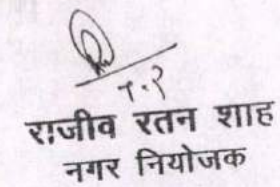 राजीव रतन शाह
नगर नियोजक